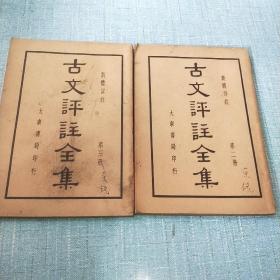 言體註釋
古文評註全集
第三冊
大東書局印行
言體註釋
古文評註全集
第二冊
大東書局印行